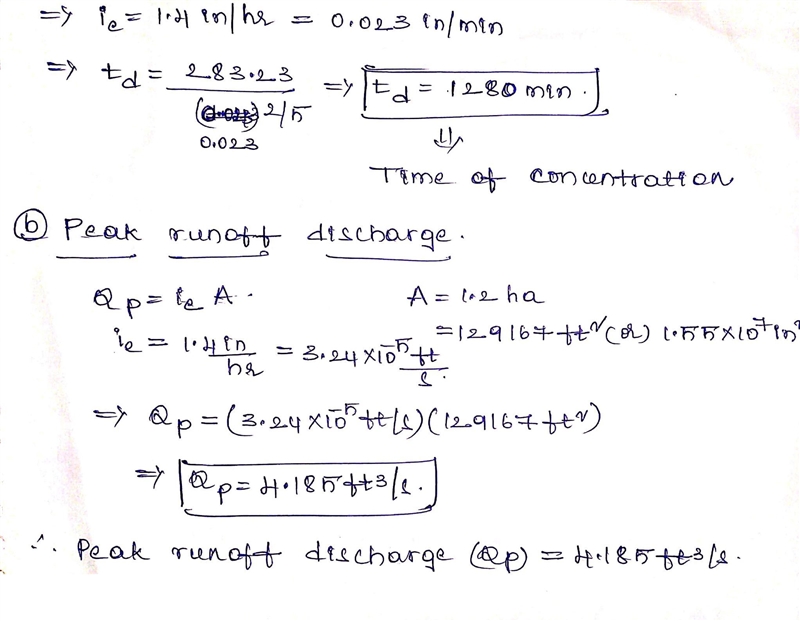 ⇒ ie = 1.4 in/hr = 0.023 in/min
⇒ td = 283.23 / (0.023) 2/5 ⇒ td = 1280 min.
0.023
⇓
Time of concentration
ⓑ Peak runoff discharge.
Qp = ie A. A = 1.2 ha
= 129167 ft² (or) 1.55×10⁷ in²
ie = 1.4 in/hr = 3.24×10⁻⁵ ft/s.
⇒ Qp = (3.24×10⁻⁵ ft/s)(129167 ft²)
⇒ Qp = 4.185 ft³/s.
∴ Peak runoff discharge (Qp) = 4.185 ft³/s.